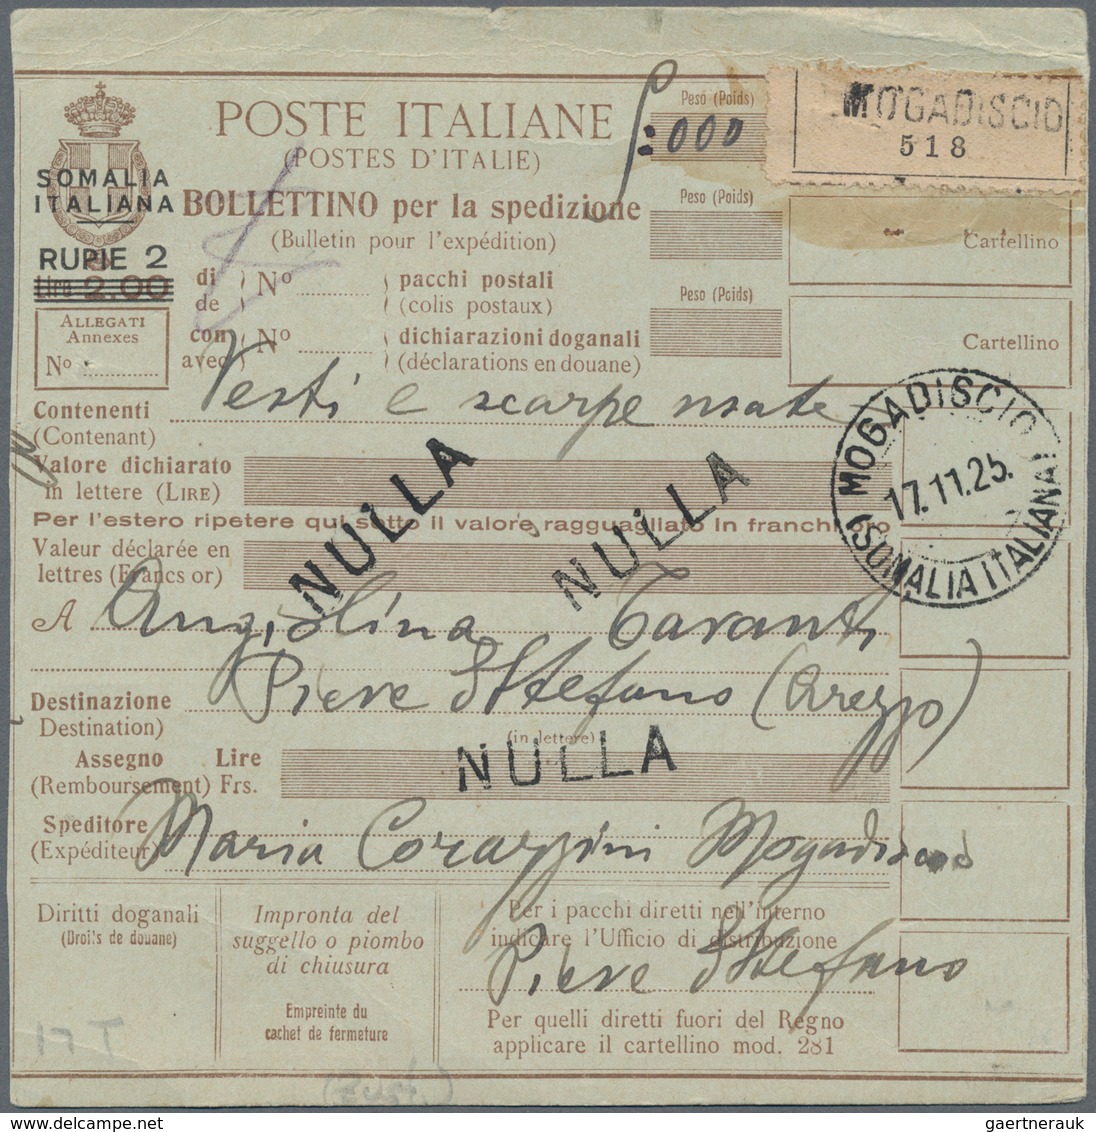 POSTE ITALIANE
(POSTES D'ITALIE)
Peso (Poids)
:000
MOGADISCIO
518
SOMALIA
ITALIANA
BOLLETTINO per la spedizione
(Bulletin pour l'expédition)
Peso (Poids)
Cartellino
RUPIE 2
Lire 2.00
di
de
Nº
pacchi postali
(colis postaux)
Peso (Poids)
ALLEGATI
Annexes
Nº
con
avec
Nº
dichiarazioni doganali
(déclarations en douane)
Cartellino
Contenenti
(Contenant)
Vesti e scarpe usate
MOGADISCIO
17.11.25.
(SOMALIA ITALIANA)
Valore dichiarato
in lettere (LIRE)
NULLA
NULLA
Per l'estero ripetere qui sotto il valore ragguagliato in franchi oro
Valeur déclarée en
lettres (Francs or)
A Angiolina Tavanti
Pieve S Stefano (Arezzo)
Destinazione
(Destination)
(in lettere)
Assegno Lire
(Remboursement) Frs.
NULLA
Speditore
(Expéditeur)
Maria Corazzini Mogadiscio
Diritti doganali
(Droits de douane)
Impronta del
suggello o piombo
di chiusura
Empreinte du
cachet de fermeture
Per i pacchi diretti nell'interno
indicare l'Ufficio di distribuzione
Pieve S Stefano
Per quelli diretti fuori del Regno
applicare il cartellino mod. 281
17 T
gaertnerauk
gaertnerauk.com